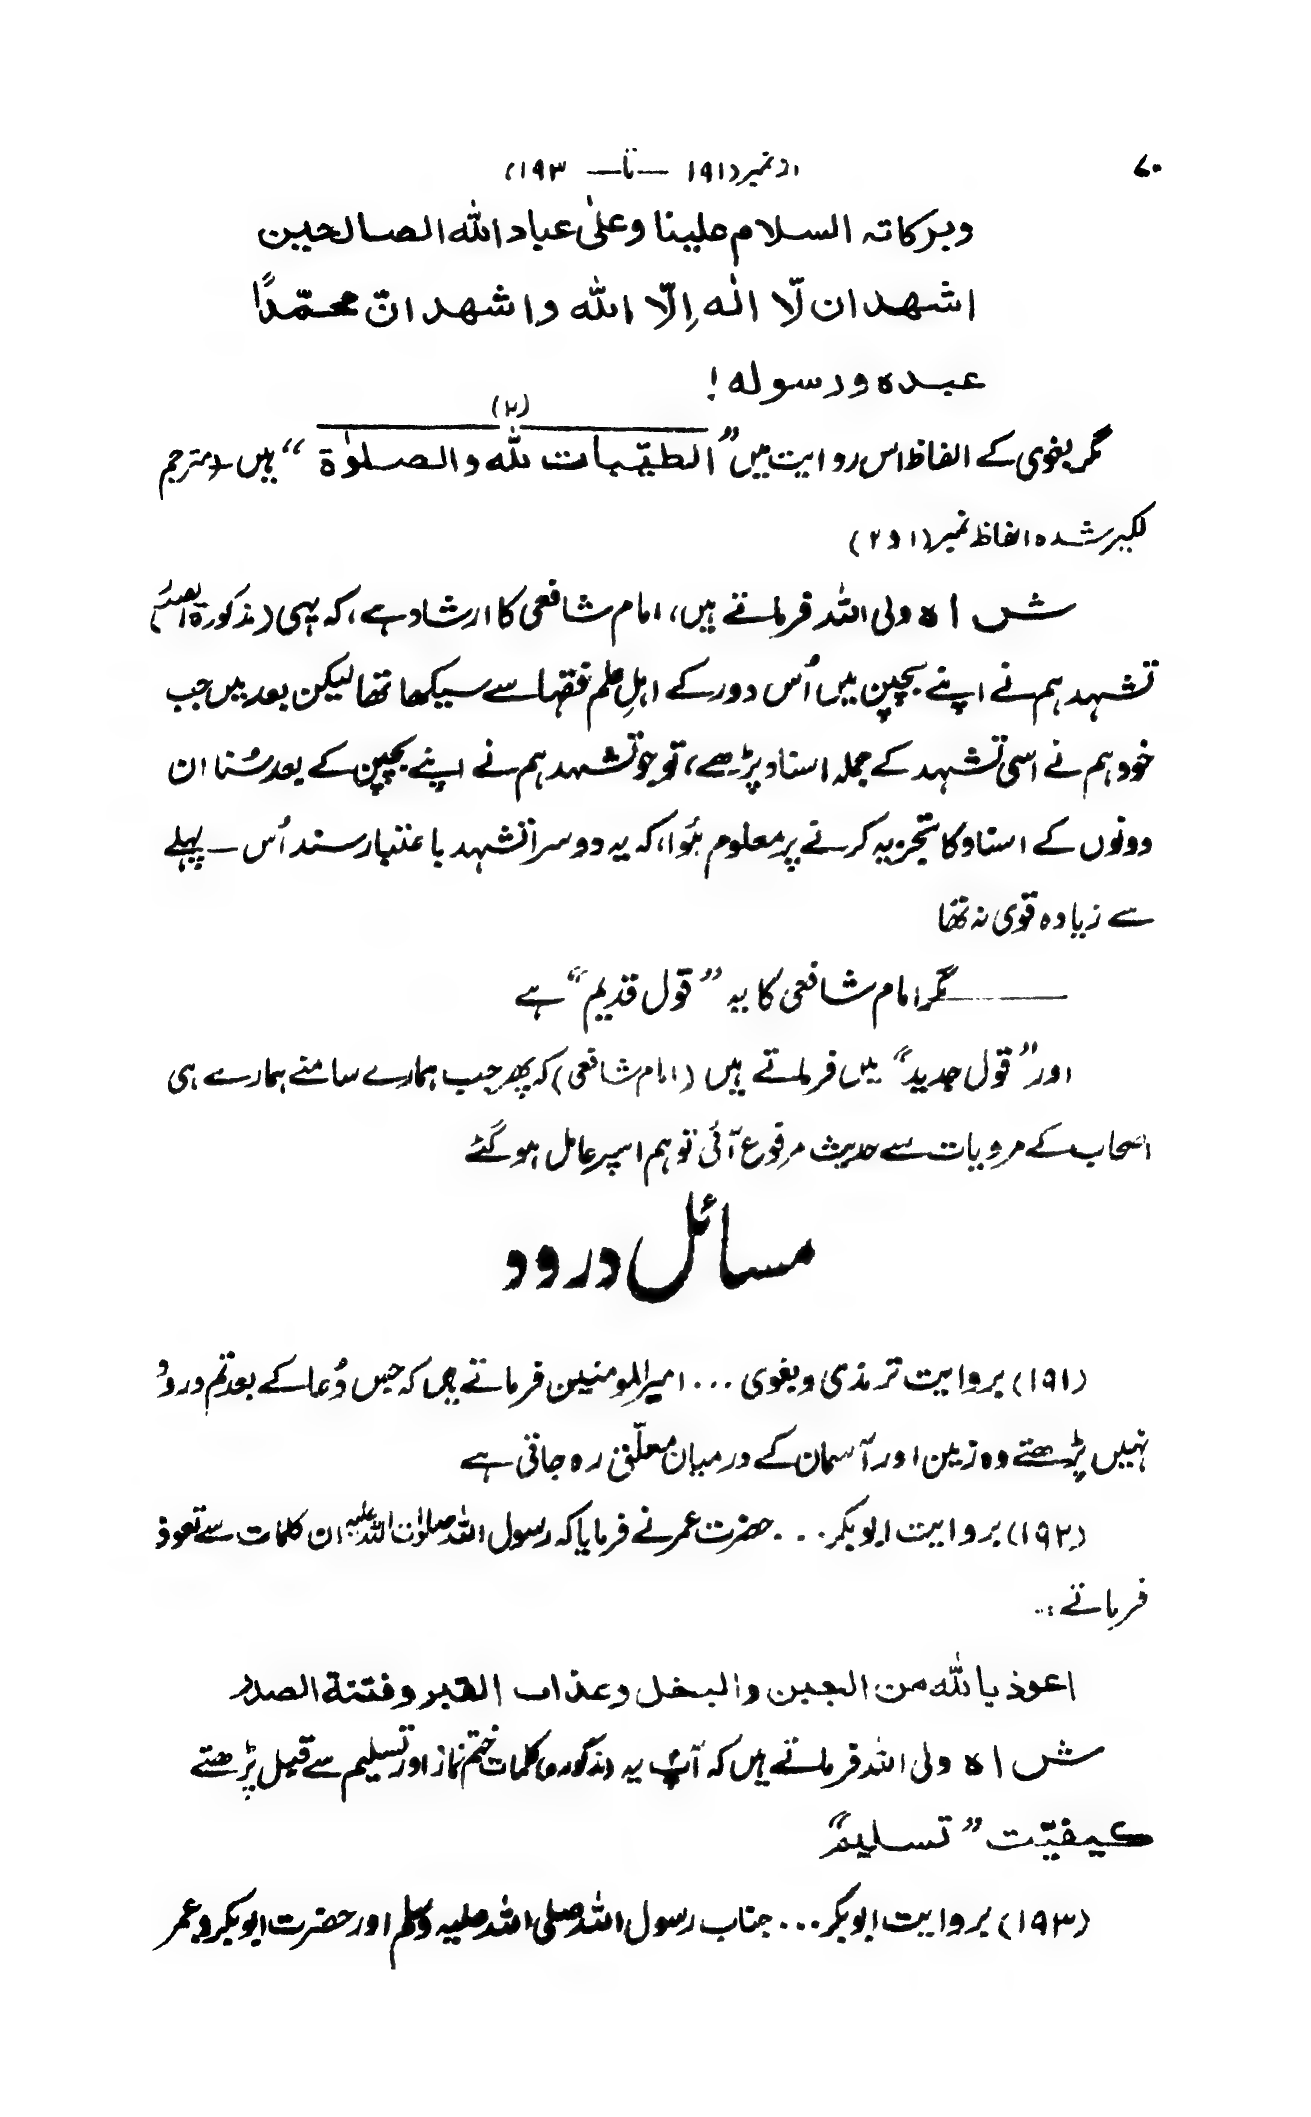 ۷۰
از نمبر (۱۹۱ — تا — ۱۹۳)
وبرکاتہ السلام علینا وعلیٰ عباد اللہ الصالحین
اشھد ان لّا الٰہ اِلّا اللہ واشھد انّ محمّدًا
عبدہ ورسولہ!
(۲)
مگر بغوی کے الفاظ اس روایت میں ”الطیّبات للہ والصلوٰۃ“ ہیں۔ (مترجم
لکیر شدہ الفاظ نمبر (۱ و ۲)
شاہ ولی اللہ فرماتے ہیں، امام شافعی کا ارشاد ہے، کہ یہی (مذکورۃ الصدر)
تشہد ہم نے اپنے بچپن میں اُس دور کے اہلِ علم فقہا سے سیکھا تھا لیکن بعد میں جب
خود ہم نے اسی تشہد کے جملہ اسناد پڑھے، تو جو تشہد ہم نے اپنے بچپن کے بعد سُنا ان
دونوں کے اسناد کا تجزیہ کرنے پر معلوم ہُوا، کہ یہ دوسرا تشہد باعتبار سند اُس — پہلے
سے زیادہ قوی نہ تھا
——— مگر امام شافعی کا یہ ”قول قدیم“ ہے
اور ”قول جدید“ میں فرماتے ہیں (امام شافعی) کہ پھر جب ہمارے سامنے ہمارے ہی
اصحاب کے مرویات سے حدیث مرفوع آئی تو ہم اسپر عامل ہو گئے
مسائل درود
(۱۹۱) بروایت ترمذی و بغوی ... امیر المومنین فرماتے ہیں کہ جس دُعا کے بعد تم درود
نہیں پڑھتے وہ زمین اور آسمان کے درمیان معلّق رہ جاتی ہے
(۱۹۲) بروایت ابوبکر ... حضرت عمر نے فرمایا کہ رسول اللہ صلوٰت اللہ علیہ ان کلمات سے تعوذ
فرماتے :..
اعوذ باللہ من الجبن والبخل وعذاب القبر وفتنة الصدر
شاہ ولی اللہ فرماتے ہیں کہ آپؐ یہ (مذکورہ) کلمات ختم نماز اور تسلیم سے قبل پڑھتے
کیفیّت ”تسلیم“
(۱۹۳) بروایت ابوبکر ... جناب رسول اللہ صلی اللہ علیہ وسلم اور حضرت ابوبکر و عمر